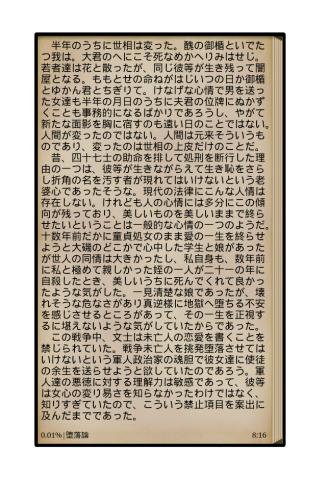 半年のうちに世相は変った。醜の御楯といでた
つ我は。大君のへにこそ死なめかへりみはせじ。
若者達は花と散ったが、同じ彼等が生き残って闇
屋となる。ももとせの命ねがはじいつの日か御楯
とゆかん君とちぎりて。けなげな心情で男を送っ
た女達も半年の月日のうちに夫君の位牌にぬかず
くことも事務的になるばかりであろうし、やがて
新たな面影を胸に宿すのも遠い日のことではない。
人間が変ったのではない。人間は元来そういうも
のであり、変ったのは世相の上皮だけのことだ。
　昔、四十七士の助命を排して処刑を断行した理
由の一つは、彼等が生きながらえて生き恥をさら
し折角の名を汚す者が現れてはいけないという老
婆心であったそうな。現代の法律にこんな人情は
存在しない。けれども人の心情には多分にこの傾
向が残っており、美しいものを美しいままで終ら
せたいということは一般的な心情の一つのようだ。
十数年前だかに童貞処女のまま愛の一生を終らせ
ようと大磯のどこかで心中した学生と娘があった
が世人の同情は大きかったし、私自身も、数年前
に私と極めて親しかった姪の一人が二十一の年に
自殺したとき、美しいうちに死んでくれて良かっ
たような気がした。一見清楚な娘であったが、壊
れそうな危なさがあり真逆様に地獄へ堕ちる不安
を感じさせるところがあって、その一生を正視す
るに堪えないような気がしていたからであった。
　この戦争中、文士は未亡人の恋愛を書くことを
禁じられていた。戦争未亡人を挑発堕落させては
いけないという軍人政治家の魂胆で彼女達に使徒
の余生を送らせようと欲していたのであろう。軍
人達の悪徳に対する理解力は敏感であって、彼等
は女心の変り易さを知らなかったわけではなく、
知りすぎていたので、こういう禁止項目を案出に
及んだまでであった。
0.01%|堕落論 8:16